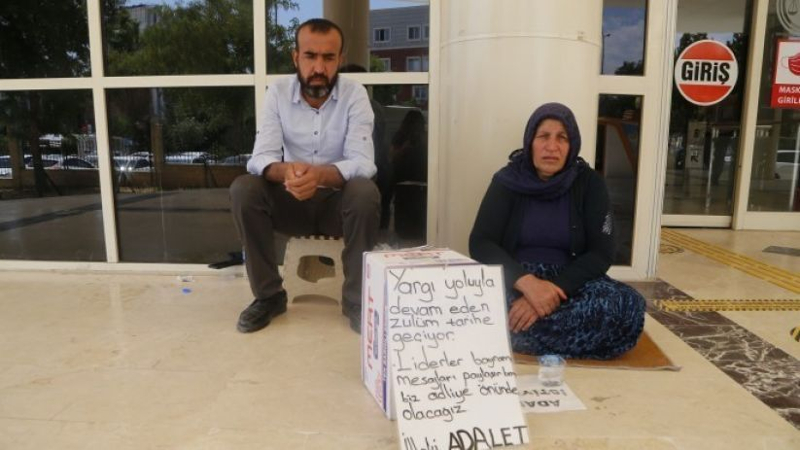 GİRİŞ
MASK
GİRİL
MERT
Yargı yoluyla
devam eden
zulüm tarihe
geçiyor.
Liderler bayram
mesajları paylaşırken
biz adliye önünde
olacağız
İlle de ADALET
ADAL